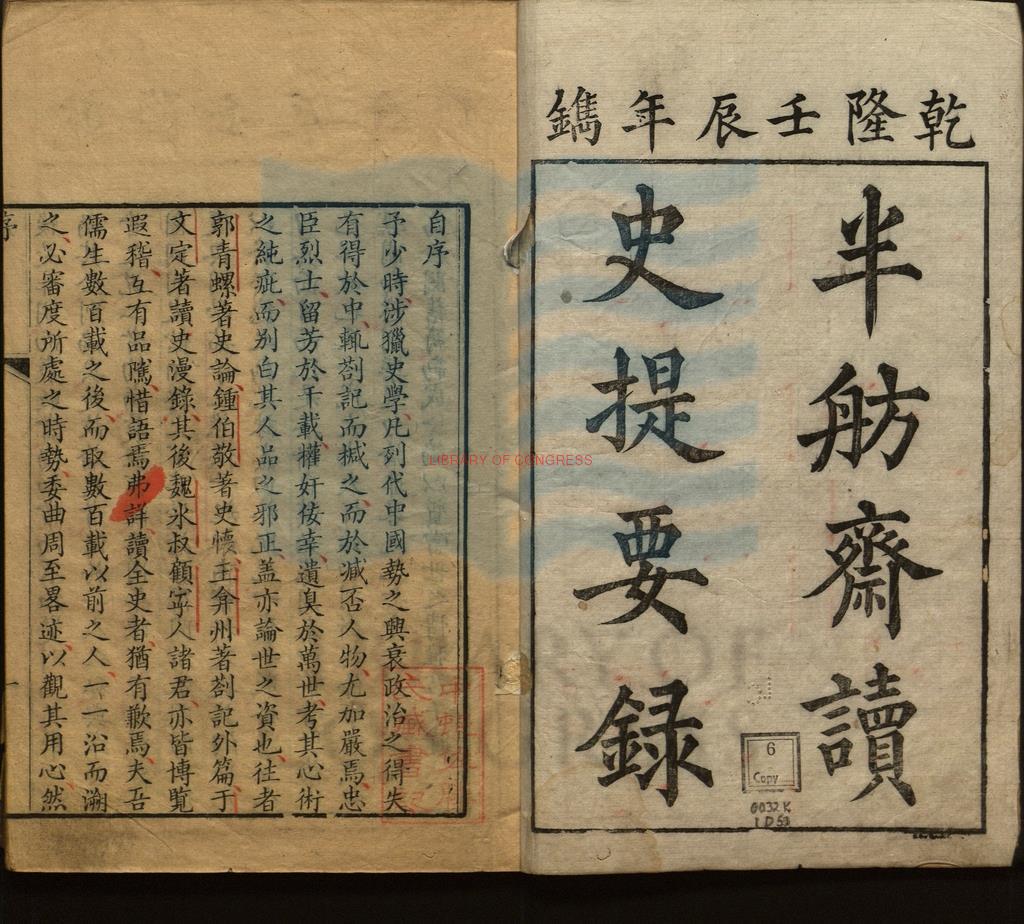 乾隆壬辰年鐫
半舫齋讀
史提要録
6
Copy
LIBRARY OF CONGRESS
自序
予少時涉獵史學凡列代中國勢之興衰政治之得失
有得於中輒劄記而摵之而於臧否人物尤加嚴焉忠
臣烈士留芳於千載權奸佞幸遺臭於萬世考其心術
之純疵而別白其人品之邪正盖亦論世之資也往者
郭青螺著史論鍾伯敬著史懷王弇州著劄記外篇于
文定著讀史漫錄其後魏氷叔顧寜人諸君亦皆博覽
遐稽互有品隲惜語焉弗詳讀全史者猶有歉焉夫吾
儒生數百載之後而取數百載以前之人一一沿而溯
之必審度所處之時勢委曲周至畧迹以觀其用心然
序
一